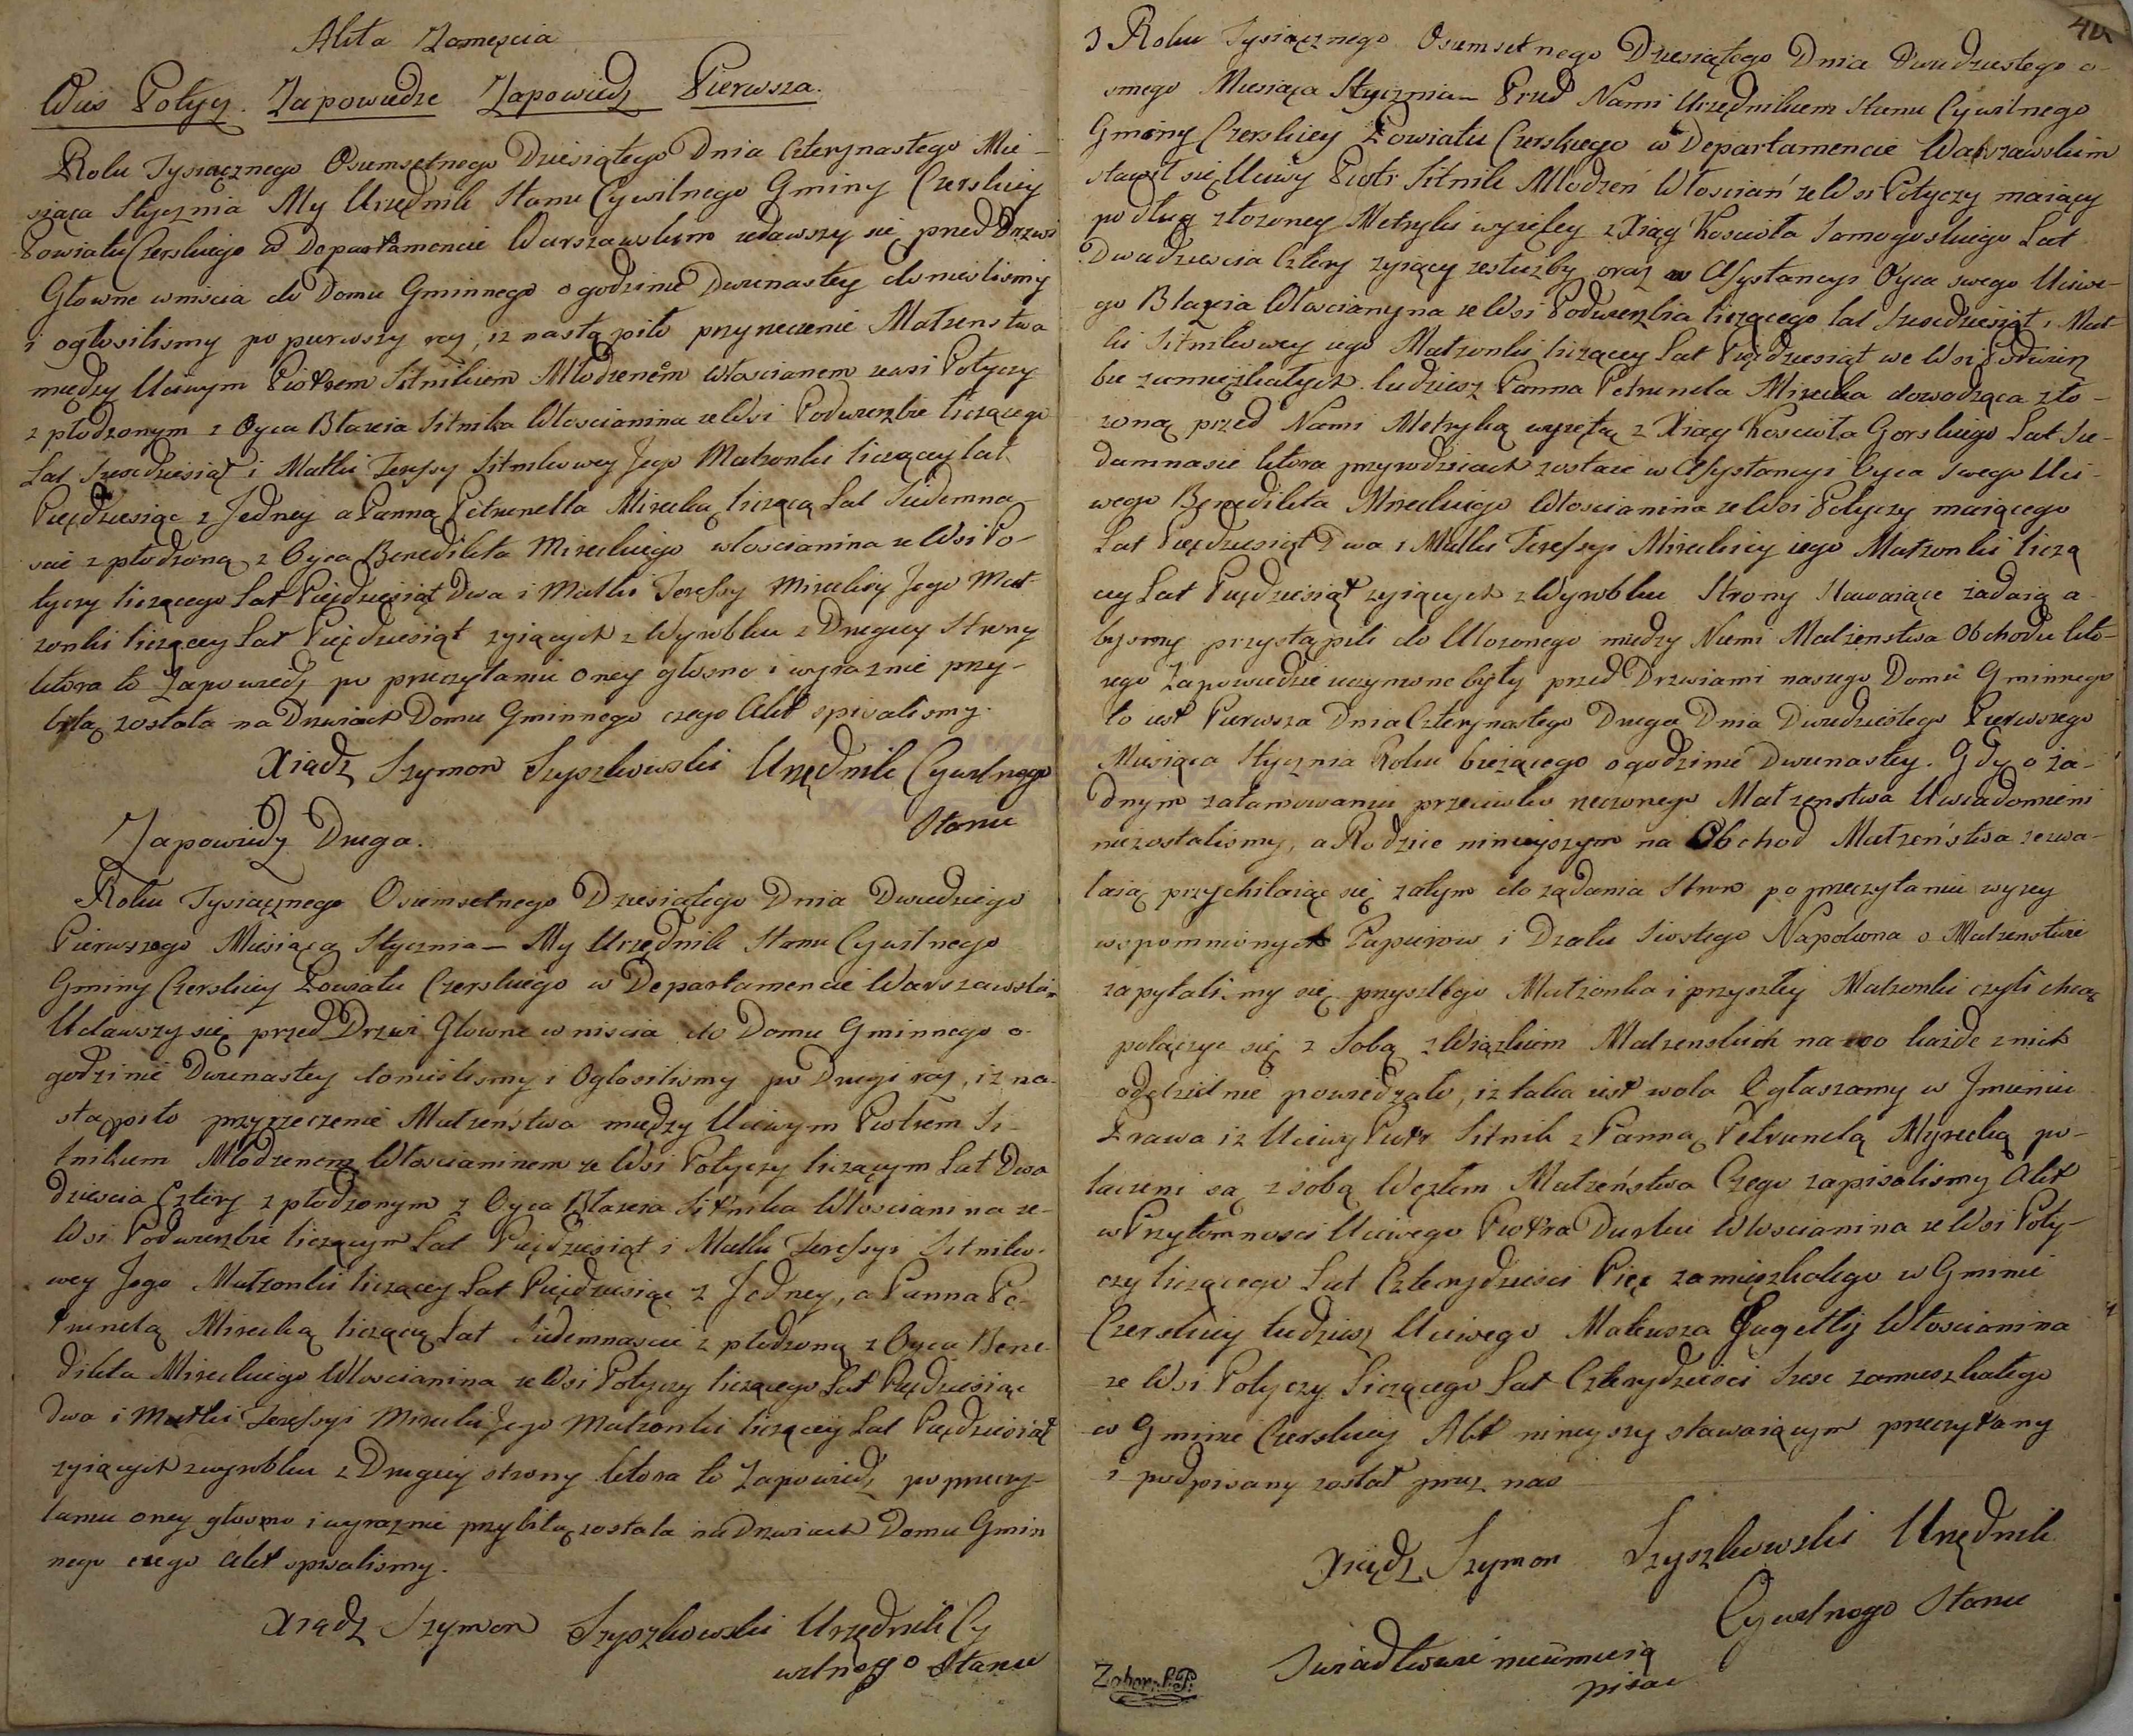 Akta Zamęscia
Wieś Potycz. Zapowiedze Zapowiedz Pierwsza.
Roku Tysiącznego Osiemsetnego Dziesiątego Dnia Czterynastego Mie-
siąca Stycznia My Urzędnik Stanu Cywilnego Gminy Czerskiey
Powiatu Czerskiego w Departamencie Warszawskim udawszy się przed Drzwi
Głowne wniscia do Domu Gminnego o godzinie Dwunastey donieslismy
i ogłosilismy po pierwszy raz, iz nastąpiło przyrzeczenie Małzenstwa
między Uciwym Piotrem Sitnikiem Młodzenem włoscianem zewsi Potyczy
z płodzonym z Oyca Błazeia Sitnika Włoscianina ze Wsi Podwierzbie liczącego
Lat Szescdziesiąt i Matki Teressy Sitnikowey Jego Małzonki liczącey lat
Pięcdziesiąc z Jedney a Panną Petrunella Mirecką liczącą Lat Siedemna
scie z płodzoną z Oyca Benedikta Mireckiego włoscianina ze Wsi Po-
tyczy liczącego Lat Pięcdziesiąt Dwa i Matki Teressy Mireckiy Jego Mał-
zonki liczącey Lat Pięcdziesiąt zyiących z Wyrobku z Drugiey Strony
ktora to Zapowiedz po przeczytaniu oney głosno i wyraznie przy-
bita została na Drzwiach Domu Gminnego czego Akt spisalismy.
Xiądz Szymon Szyszkowski Urzędnik Cywilnego
Stanu
Zapowiedz Druga.
Roku Tysiącznego Osiemsetnego Dziesiątego Dnia Dwudziego
Pierwszego Miesiąca Stycznia — My Urzędnik Stanu Cywilnego
Gminy Czerskiey Powiatu Czerskiego w Departamencie Warszawskim
Udawszy się przed Drzwi Głowne wniscia do Domu Gminnego o
godzinie Dwunastey donieslismy i Ogłosilismy po Drugi raz, iz na-
stąpiło przyrzeczenie Małzeństwa między Uciwym Piotrem Si-
tnikiem Młodzenem Włoscianinem ze Wsi Potyczy liczącym Lat Dwa
dziescia Cztery z płodzonym z Oyca Błazeia Sitnika Włoscianina ze-
Wsi Podwierzbie liczącym Lat Pięcdziesiąt i Matki Teressyi Sitniko-
wey Jego Małzonki liczącey Lat Pięcdziesiąc z Jedney, a Panna Pe-
trunelą Mirecką liczącą Lat Siedemnascie z płodzoną z Oyca Bene-
dikta Mireckiego Włoscianina ze Wsi Potyczy liczącego Lat Pięcdziesiąc
Dwa i Matki Teressyi Mirecki Jego Małzonki liczącey Lat Pięcdziesiąt
zyiących z wyrobku z Drugiey strony ktora to Zapowiedz po przeczy-
taniu oney głosno i wyraznie przybitą została na Drzwiach Domu Gmin
nego czego Akt spisalismy.
Xiądz Szymon Szyszkowski Urzędnik Cy
wilnego Stanu
Roku Tysiącznego Osiemsetnego Dziesiątego Dnia Dwudziestego o-
smego Miesiąca Stycznia — Przed Nami Urzędnikiem Stanu Cywilnego
Gminy Czerskiey Powiatu Czerskiego w Departamencie Warszawskim
stawił się Uciwy Piotr Sitnik Młodzeń Włoscian ze Wsi Potyczy maiący
podług złozoney Metryki wyiętey z Xiąg Koscioła Samogoskiego Lat
Dwadziescia Cztery zyiący zesłuzby oraz w Assystancyi Oyca swego Uciwe-
go Błazeia Włoscianyna ze Wsi Podwierzbia liczącego lat Szescdziesiąt i Mat-
ki Sitnikowey iego Małzonki liczącey Lat Pięcdziesiąt we Wsi Podwierz
bie zamięszkałych. tudziesz Panna Petrunela Mirecka dowodząca zło-
zoną przed Nami Metryką wyiętą z Xiąg Koscioła Gorskiego Lat Sie-
damnascie ktora przyrodzicach zostaie w Assystancyi Oyca swego Uci-
wego Benedikta Mireckiego Włoscianina ze Wsi Potyczy maiącego
Lat Pięcdziesiąt Dwa i Matki Teressyi Mireckiey iego Małzonki liczą
cey Lat Pięcdziesiąt zyiących z Wyrobku Strony Stawaiące ządaią a-
bysmy przystąpili do Ułozonego między Niemi Małzenstwa Obchodu kto-
rego Zapowiedzie uczynione były przed Drzwiami naszego Domu Gminnego
to iest Pierwsza Dnia Czterynastego Druga Dnia Dwudziestego Pierwszego
Miesiąca Stycznia Roku biezącego o godzinie Dwunastey. Gdy o za-
dnym zatamowaniu przeciwko rzeczonego Małzenstwa Uwiadomieni
niezostalismy, a Rodzice nineyszym na Obchod Małzeństwa zezwa-
laią przychilaiąc się zatym do ządania Stron po przeczytaniu wyzey
wspomnionych Papierow i Działu Szostego Napoleona o Małzenstwie
zapytalismy się przyszłego Małzonka i przyszłey Małzonki czyli chcą
połączyc się z Sobą z Wiązkiem Małzenskich na co kazde z nich
oddzielnie powiedzało, iz taka iest wola Ogłaszamy w Jmieniu
Prawa iz Uciwy Piotr Sitnik z Panną Petrunelą Myrecką po-
łączeni są z sobą Węzłem Małzeństwa Czego zapisalismy Akt
w Przytomnosci Uciwego Piotra Durki Włoscianina ze Wsi Poty-
czy liczącego Lat Czterydziesci Pięc zamięszkałego w Gminie
Czerskiey tudziesz Uciwego Mateusza Gugetty Włoscianina
ze Wsi Potyczy Liczącego Lat Czterydziesci Szesc zamieszkałego
w Gminie Czerskiey Akt nineyszy stawaiącym przeczytany
i podpisany został przez nas
Xiądz Szymon Szyszkowski Urzędnik
Cywilnego Stanu
Swiadkowie nieumieią
pisac